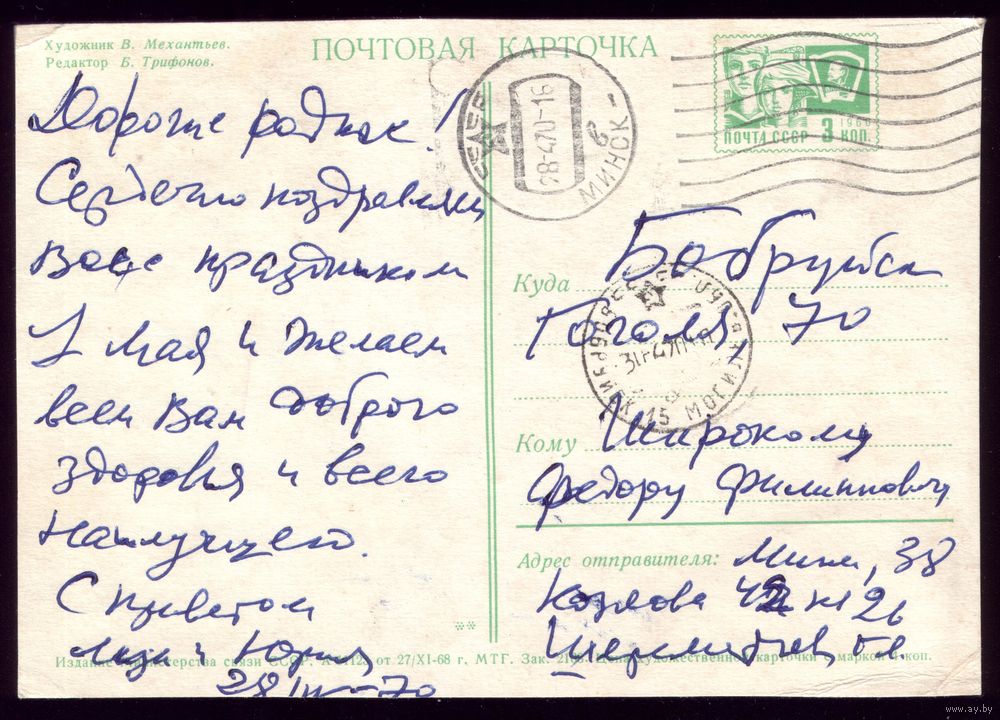 Художник В. Механтьев.
Редактор Б. Трифонов.
ПОЧТОВАЯ КАРТОЧКА
ПОЧТА СССР 3 КОП.
1966
МИНСК
28-470-16
Дорогие родные!
Сердечно поздравляем
Вас с праздником
1 Мая и желаем
всем Вам доброго
здоровья и всего
наилучшего.
С приветом
Юрий
28/IV-70
Куда Бобруйск
Гоголя, 70
Кому Широкому
Федору Филипповичу
Адрес отправителя: Минск, 38
Козлова кв 26
Издание Министерства связи СССР. от 27/XI-68 г. МТГ. Зак. Цена художественной карточки с маркой 4 коп.
www.ay.by